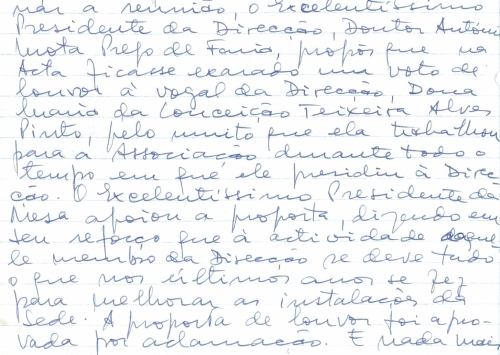 nar a reunião, o Excelentíssimo
Presidente da Direcção, Doutor António
Mota Prego de Faria, propôs que na
Acta ficasse exarado um voto de
louvor à vogal da Direcção, Dona
Maria da Conceição Teixeira Alves
Pinto, pelo muito que ela trabalhou
para a Associação durante todo o
tempo em que ele presidiu à Direc
ção. O Excelentíssimo Presidente da
Mesa apoiou a proposta, dizendo em
seu reforço que à actividade daque
le membro da Direcção se deve tudo
o que nos últimos anos se fez
para melhorar as instalações da
Sede. A proposta de louvor foi apro-
vada por aclamação. E nada mais